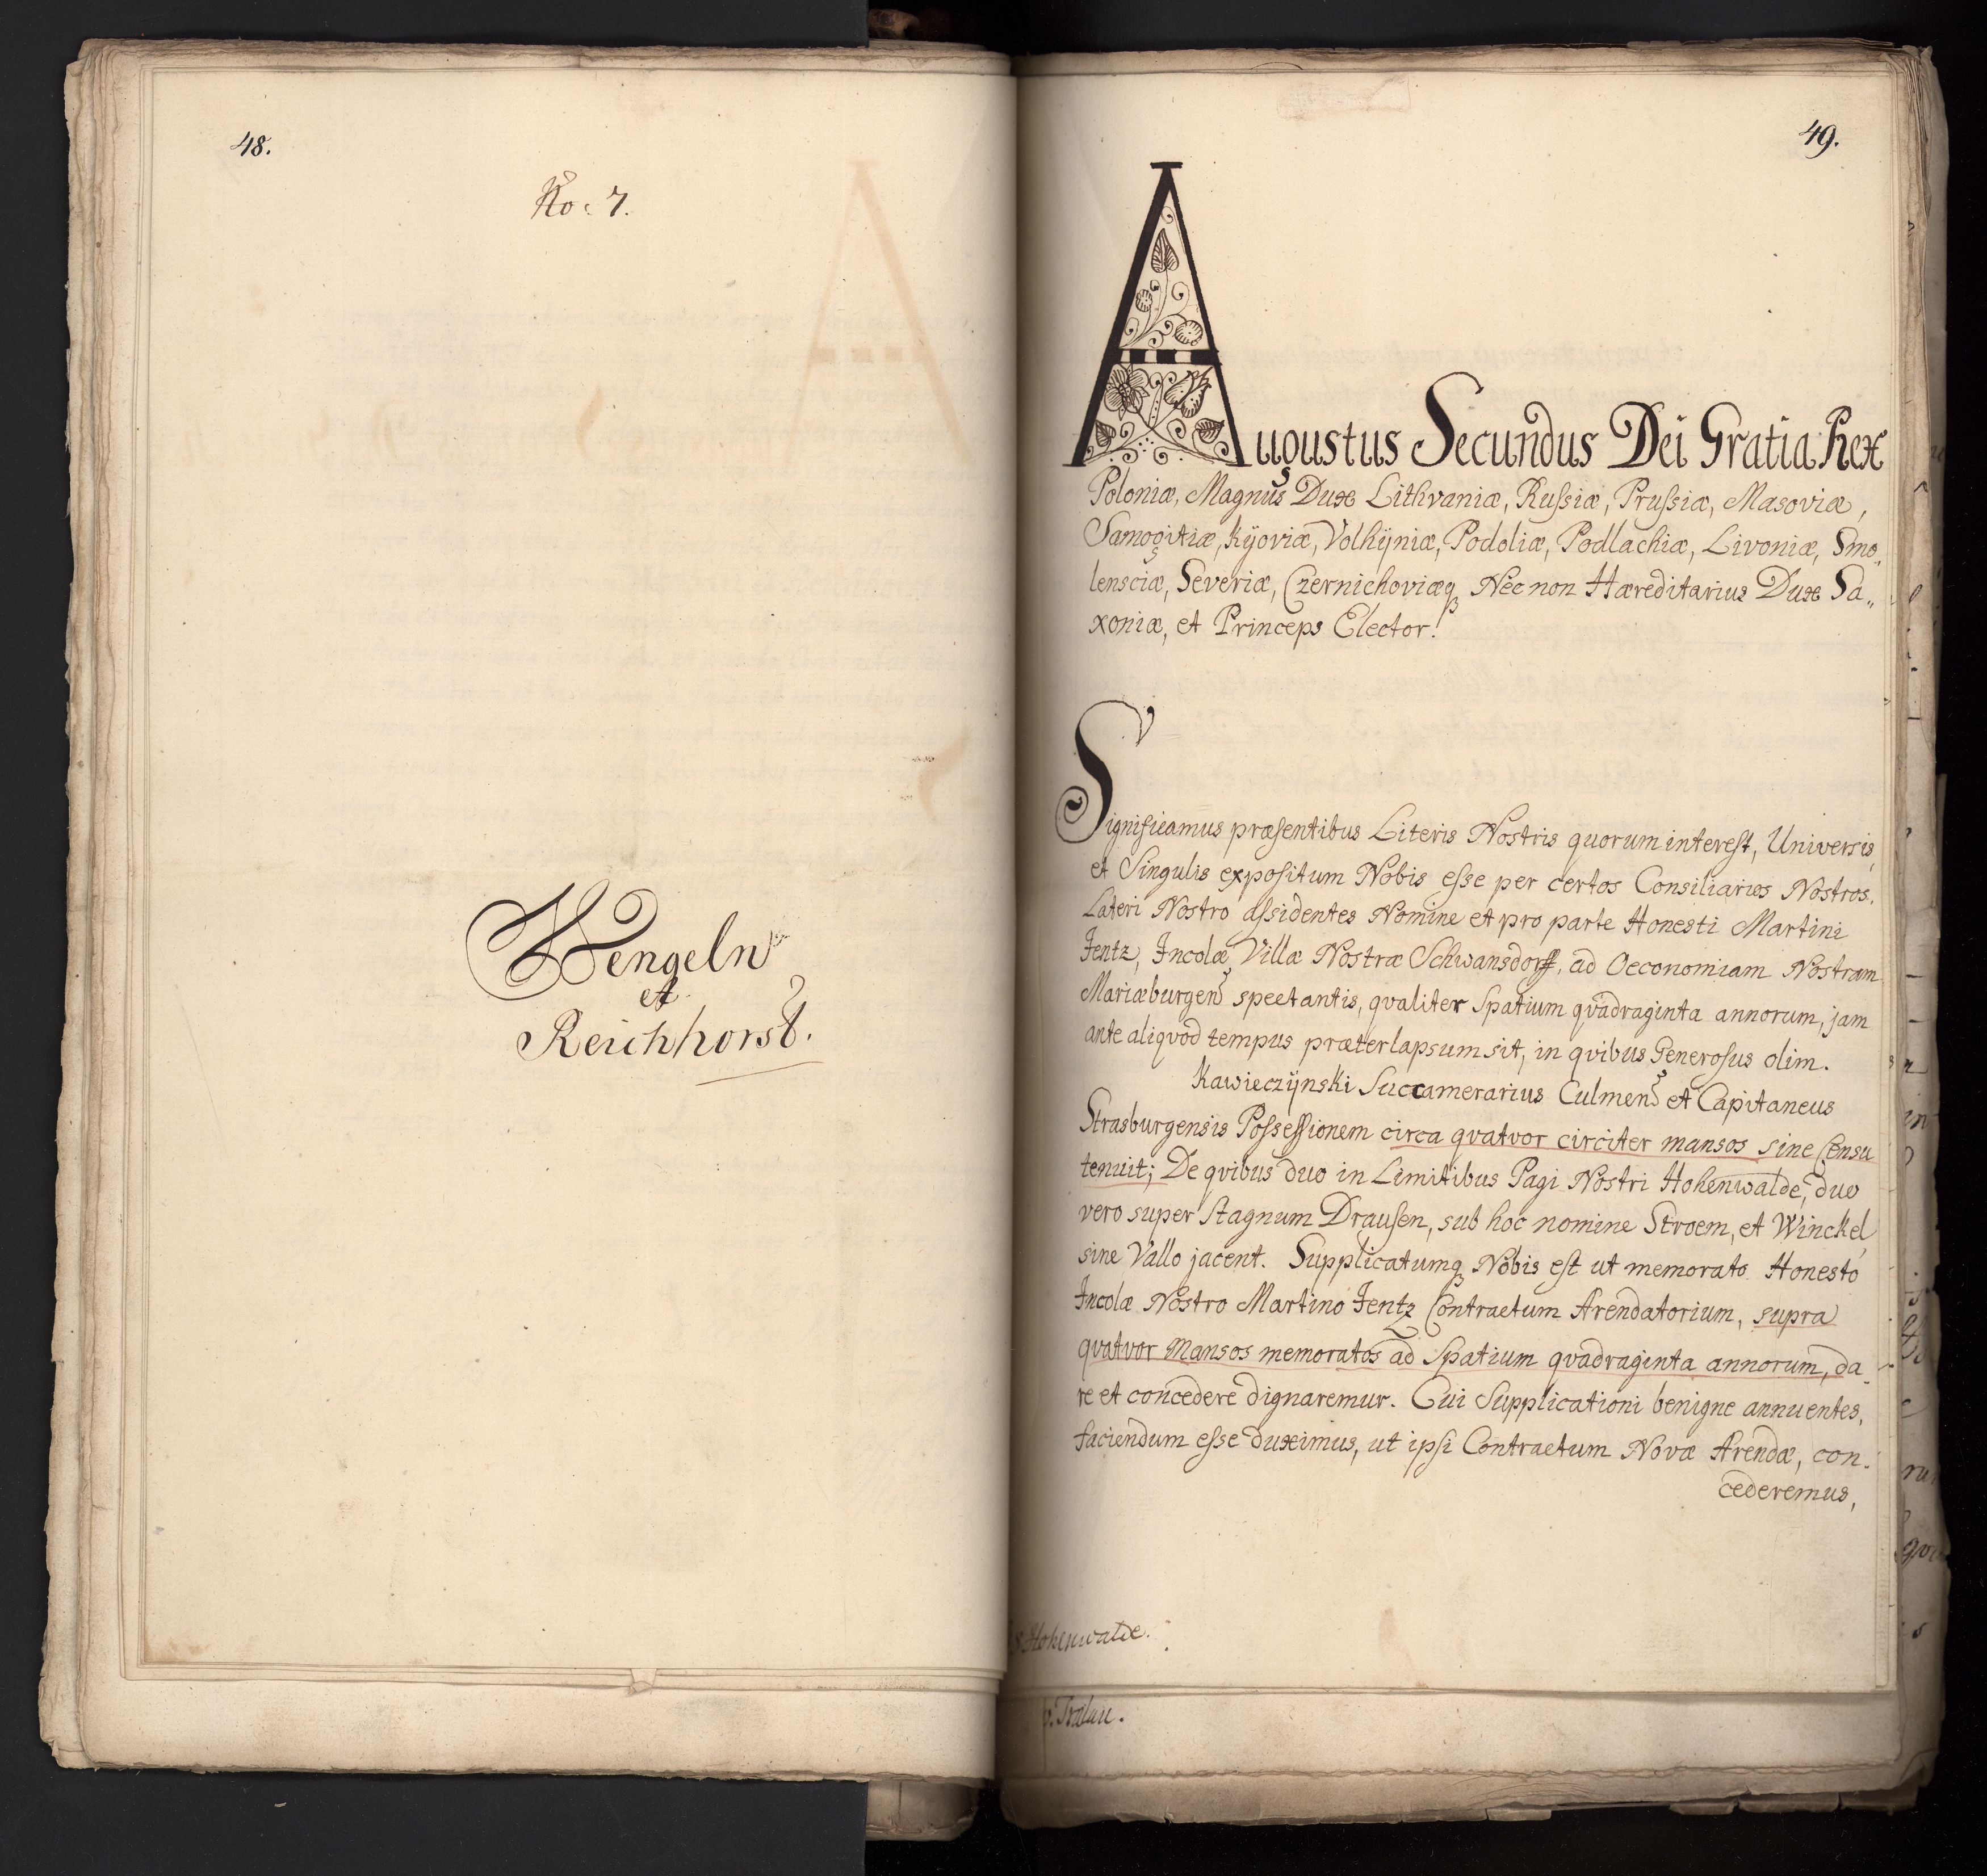 48.
No: 7.
Wengeln
et
Reichhorst.
49.
Augustus Secundus Dei Gratia Rex
Poloniæ, Magnus Dux Lithvaniæ, Rußiæ, Prußiæ, Masoviæ,
Samogitiæ, Kÿoviæ, Volhÿniæ, Podoliæ, Podlachiæ, Livoniæ, Smo„
lensciæ, Severiæ, Czernichoviæq̃ Nec non Hæreditarius Dux Sa„
xoniæ, et Princeps Elector.
Significamus præsentibus Literis Nostris quorum interest, Universis,
et Singulis expositum Nobis esse per certos Consiliarios Nostros,
Lateri Nostro aßidentes Nomine et pro parte Honesti Martini
Jentz, Incolæ Villæ Nostræ Schwansdorff, ad Oeconomiam Nostram
Mariæburgens̃ spectantis, qvaliter Spatium qvadraginta annorum, jam
ante aliqvod tempus præterlapsum sit, in qvibus Generosus olim.
Kawieczÿnski Succamerarius Culmens̃ et Capitaneus
Strasburgensis Possessionem circa qvatvor circiter mansos sine Censu
tenuit; De qvibus duo in Limitibus Pagi Nostri Hohenwalde, duo
vero super Stagnum Drausen, sub hoc nomine Stroem, et Winckel,
sine Vallo jacent. Supplicatumq̃ Nobis est ut memorato Honesto
Incolæ Nostro Martino Jentz Contractum Arendatorium, supra
qvatvor Mansos memoratos ad Spatium qvadraginta annorum, da„
re et concedere dignaremur. Cui Supplicationi benigne annuentes,
faciendum esse duximus, ut ipsi Contractum Novæ Arendæ, con„
cederemus,
Hohenwalde.